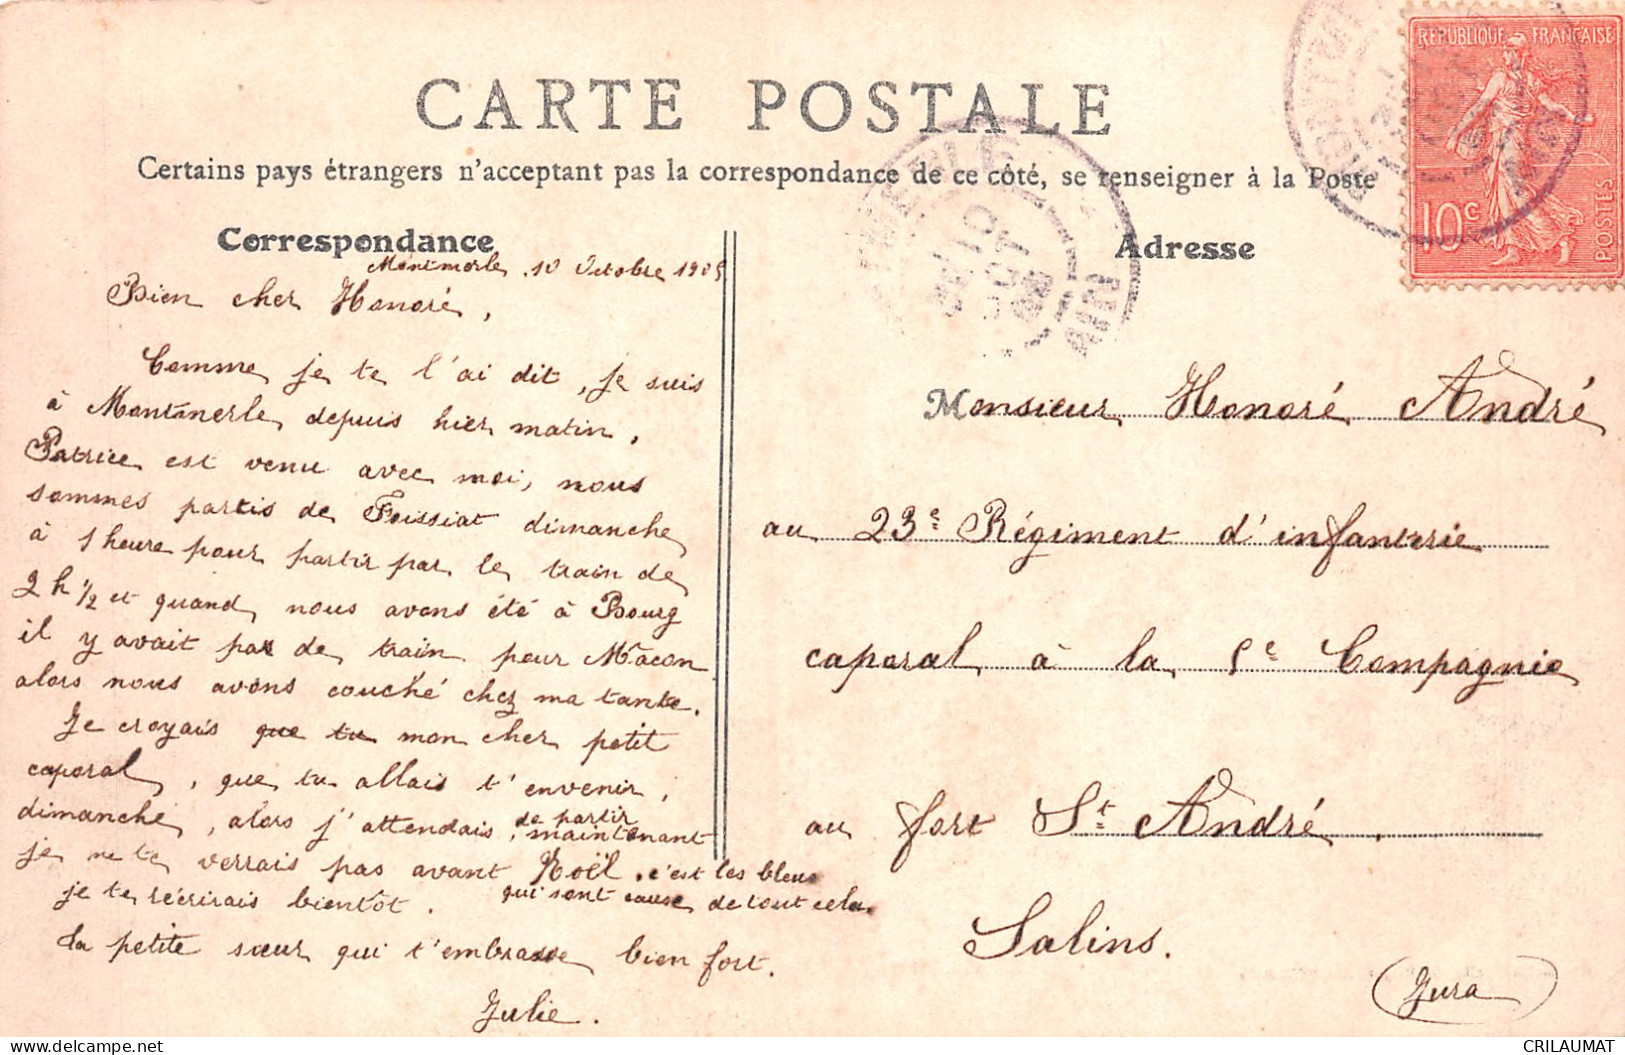 CARTE POSTALE
Certains pays étrangers n'acceptant pas la correspondance de ce côté, se renseigner à la Poste
REPUBLIQUE FRANÇAISE
10c
POSTES
Correspondance
Montmerle, 10 Octobre 1905
Bien cher Honoré,
Comme je te l'ai dit, je suis
à Montmerle depuis hier matin,
Patrice est venu avec moi, nous
sommes partis de Foissiat dimanche
à 1 heure pour partir par le train de
2 h 1/2 et quand nous avons été à Bourg
il y avait pas de train pour Mâcon
alors nous avons couché chez ma tante.
Je croyais que tu mon cher petit
caporal, que tu allais t'envenir,
dimanche, alors j'attendais de partir, maintenant
je ne te verrais pas avant Noël, c'est les bleus
qui sont cause de tout cela.
je te récrirais bientôt.
Ta petite sœur qui t'embrasse bien fort.
Julie.
Adresse
10 OCT
AIN
Monsieur Honoré André
au 23e Régiment d'infanterie
caporal à la 5e Compagnie
au fort St André.
Salins.
(Jura)
CRILAUMAT